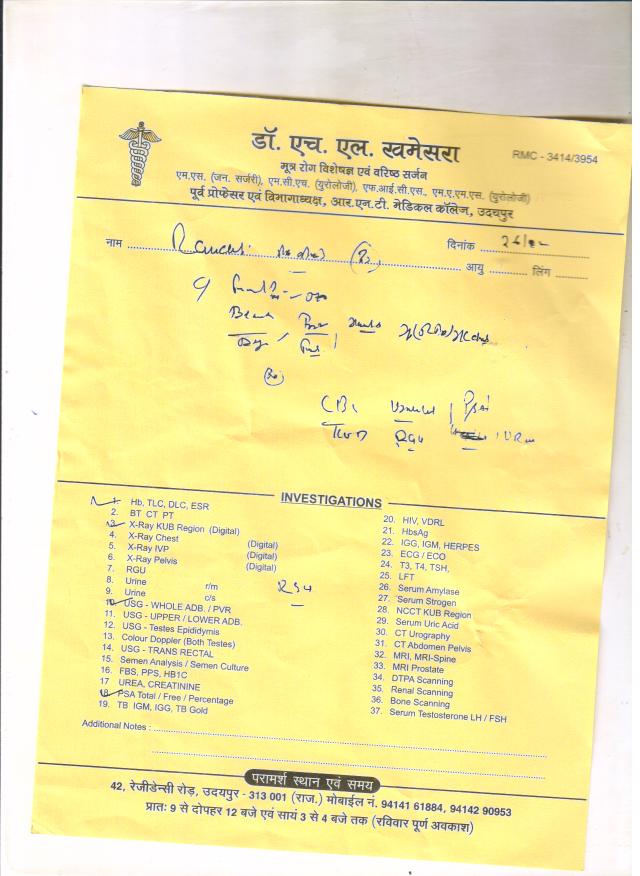 डॉ. एच. एल. खमेसरा
RMC - 3414/3954
मूत्र रोग विशेषज्ञ एवं वरिष्ठ सर्जन
एम.एस. (जन. सर्जरी), एम.सी.एच. (युरोलोजी), एफ.आई.सी.एस., एम.ए.एम.एस. (युरोलोजी)
पूर्व प्रोफेसर एवं विभागाध्यक्ष, आर.एन.टी. मेडिकल कॉलेज, उदयपुर
नाम
दिनांक
आयु लिंग
INVESTIGATIONS
1. Hb, TLC, DLC, ESR
2. BT CT PT
3. X-Ray KUB Region (Digital)
4. X-Ray Chest (Digital)
5. X-Ray IVP (Digital)
6. X-Ray Pelvis (Digital)
7. RGU
8. Urine r/m
9. Urine c/s
10. USG - WHOLE ADB. / PVR
11. USG - UPPER / LOWER ADB.
12. USG - Testes Epididymis
13. Colour Doppler (Both Testes)
14. USG - TRANS RECTAL
15. Semen Analysis / Semen Culture
16. FBS, PPS, HB1C
17 UREA, CREATININE
18. PSA Total / Free / Percentage
19. TB IGM, IGG, TB Gold
20. HIV, VDRL
21. HbsAg
22. IGG, IGM, HERPES
23. ECG / ECO
24. T3, T4, TSH,
25. LFT
26. Serum Amylase
27. Serum Strogen
28. NCCT KUB Region
29. Serum Uric Acid
30. CT Urography
31. CT Abdomen Pelvis
32. MRI, MRI-Spine
33. MRI Prostate
34. DTPA Scanning
35. Renal Scanning
36. Bone Scanning
37. Serum Testosterone LH / FSH
Additional Notes :
परामर्श स्थान एवं समय
42, रेजीडेन्सी रोड़, उदयपुर - 313 001 (राज.) मोबाईल नं. 94141 61884, 94142 90953
प्रातः 9 से दोपहर 12 बजे एवं सायं 3 से 4 बजे तक (रविवार पूर्ण अवकाश)